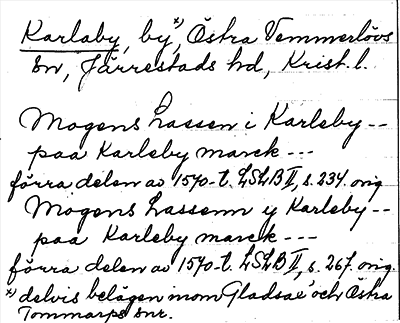 Karlaby, by*), Östra Vemmerlövs
sn, Järrestads hd, Krist. l.
Mogens Lassen i Karleby --
paa Karleby marck ---
förra delen av 1570-t. LSLB II, s. 234. orig
Mogens Lassenn y Karleby --
paa Karleby marck ---
förra delen av 1570-t. LSLB II, s. 267. orig.
*) delvis belägen inom Gladsax och Östra
Tommarps snr.